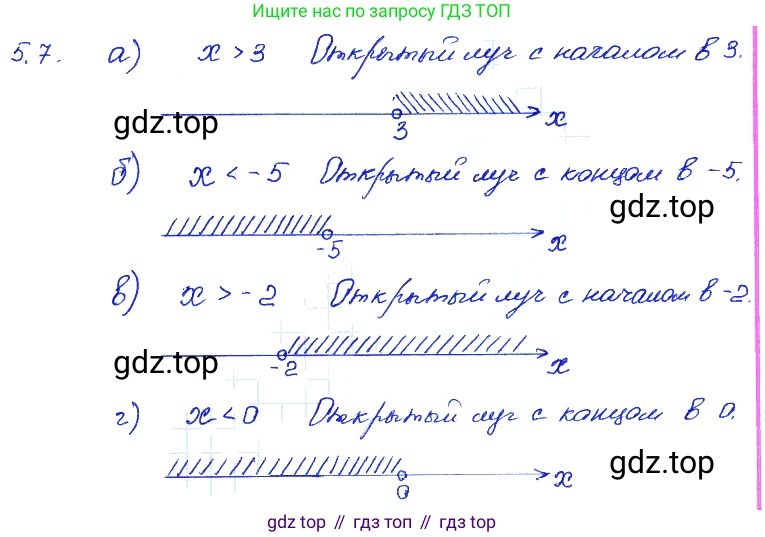 Ищите нас по запросу ГДЗ ТОП
5.7. а) x > 3 Открытый луч с началом в 3.
gdz.top
3 x
б) x < -5 Открытый луч с концом в -5.
gdz.top
-5 x
в) x > -2 Открытый луч с началом в -2.
gdz.top
-2 x
г) x < 0 Открытый луч с концом в 0.
gdz.top
0 x
gdz top // гдз топ // gdz top